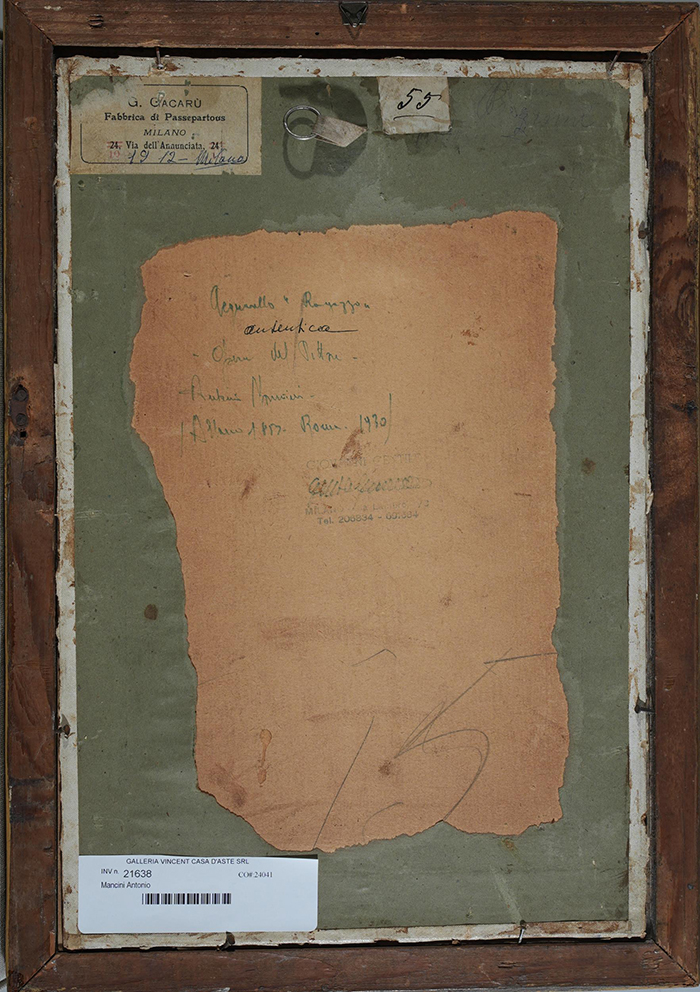 G. CACARÙ
Fabbrica di Passepartous
MILANO
24, Via dell'Annunciata, 24
1912 - Milano
55
Acquarello "
autentica
Opera del Pittore
Mancini
Roma 1930)
Tel. 206834 -
15
GALLERIA VINCENT CASA D'ASTE SRL
INV n. 21638 CO#:24041
Mancini Antonio